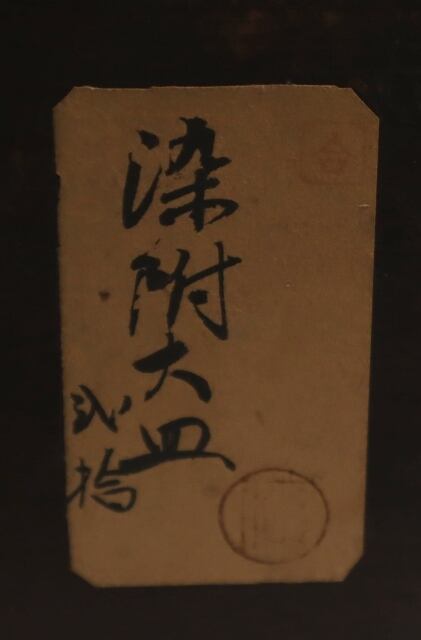 染附大皿
弐拾